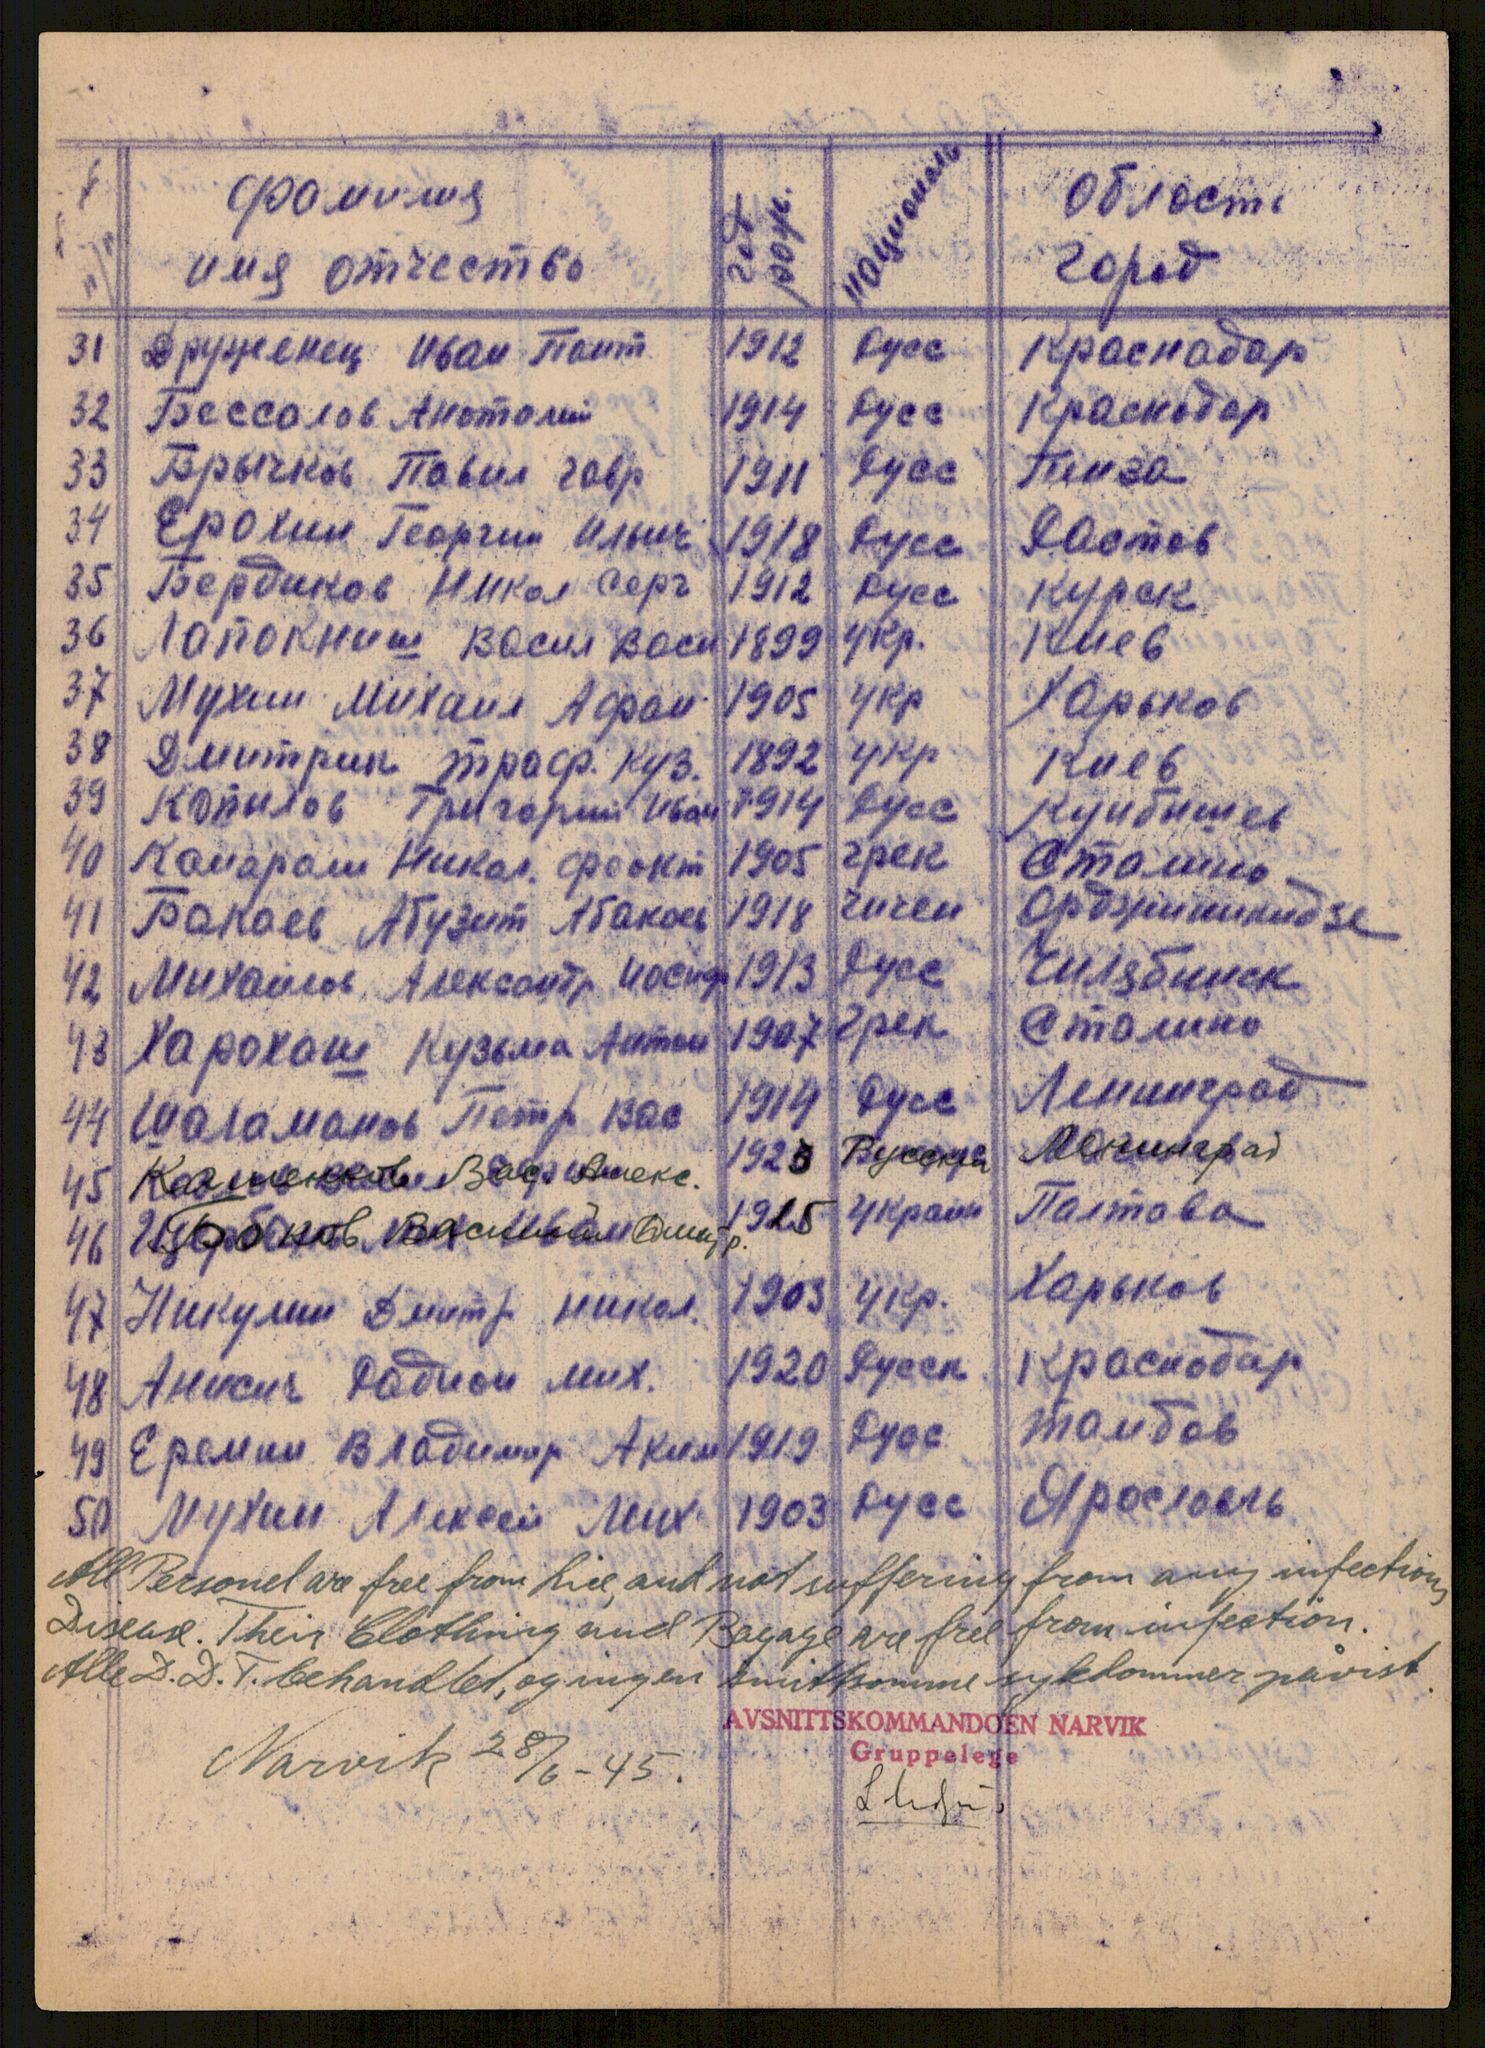 № п/п Фамилия имя отчество год рож. националь Область город
31 Друженец Иван Пант 1912 Русс Краснадар
32 Бессалов Анатолий 1914 Русс Краснодар
33 Брычков Павил Гавр 1911 Русс Пенза
34 Ерохин Георгии Ильич 1918 Русс Растов
35 Бердиков Никол Серг 1912 Русс Курск
36 Лапокниш Васил Васи 1899 Укр. Киев
37 Мухин Михаил Афан 1905 Укр Харьков
38 Дмитрик Траф. Куз. 1892 Укр Киев
39 Копылов Григорий Иван 1914 Русс Куибишев
40 Никол. Феокт 1905 Грек Сталино
41 Бакаев Абузит Абакаев 1918 Чичен Орджиникидзе
42 Михаилов Алексантр Иосиф 1913 Русс Чилябинск
43 Харохаш Кузьма Антон 1907 Грек Сталино
44 Шаламанов Петр Вас 1914 Русс Ленинград
45 Вас. Алекс. 1923 Русский Ленинград
46 Боков Василий Дмитр. 1925 Украин Палтава
47 Никулин Дмитр Никол. 1903 Укр. Харьков
48 Анисич Радион Мих. 1920 Русск Краснодар
49 Еремин Владимир Аким 1919 Русс Тамбов
50 Мухин Алексей Мих 1903 Русс Ярославль
All Personel are free from Lice, and not suffering from any infections
Disease. Their Clothing and Bagage are free from infection.
Alle D.D.T. behandlet, og ingen smittsomme sykdommer påvist.
AVSNITTSKOMMANDOEN NARVIK
Gruppelege
Narvik 28/6-45.